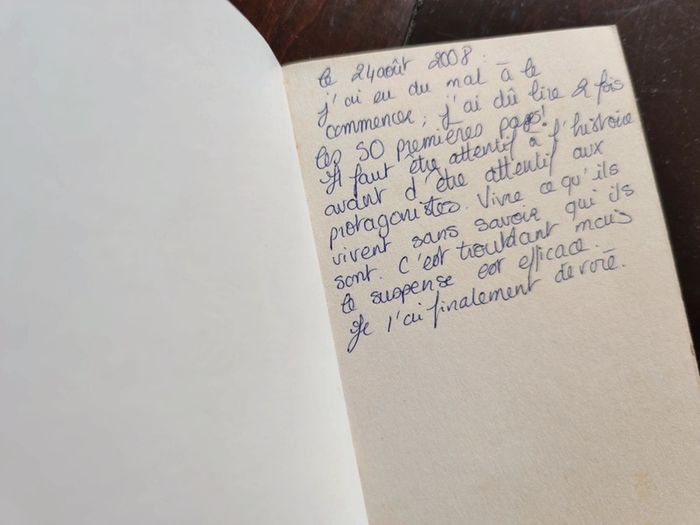 le 24 août 2008 :
j'ai eu du mal à le
commencer, j'ai dû lire 2 fois
les 50 premières pages!
Il faut être attentif à l'histoire
avant d'être attentif aux
protagonistes. Vivre ce qu'ils
vivent sans savoir qui ils
sont. C'est troublant mais
le suspense est efficace.
Je l'ai finalement dévoré.